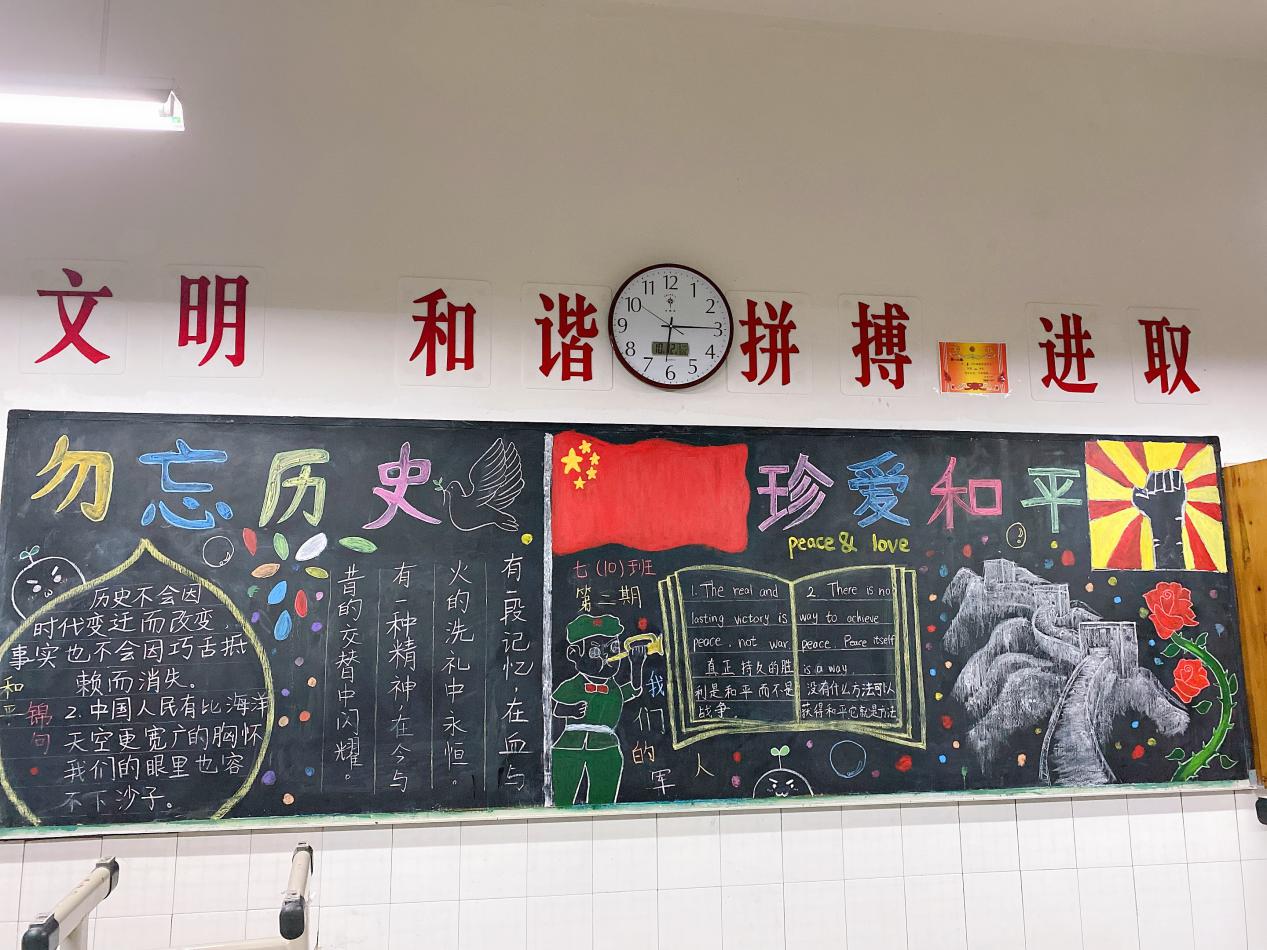 文明 和谐 拼搏 进取
12
1
2
3
4
5
6
7
8
9
10
11
勿忘历史
历史不会因
时代变迁而改变
事实也不会因巧舌抵
赖而消失。
2.中国人民有比海洋
天空更宽广的胸怀
我们的眼里也容
不下沙子。
和平
锦句
有一段记忆,在血与
火的洗礼中永恒。
有一种精神,在今与
昔的交替中闪耀。
珍爱和平
peace & love
七(10)班
第二期
1. The real and
lasting victory is
peace, not war
真正持久的胜
利是和平而不是
战争.
2 There is no
way to achieve
peace. Peace itself
is a way
没有什么方法可以
获得和平它就是方法
我们的军人